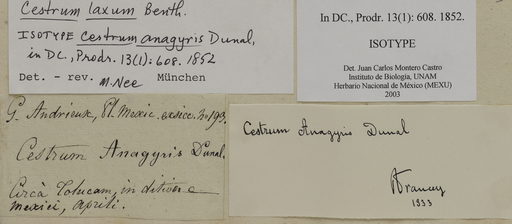 Cestrum laxum Benth.
ISOTYPE Cestrum anagyris Dunal,
in DC., Prodr. 13(1): 608. 1852
Det. - rev. M. Nee München
In DC., Prodr. 13(1): 608. 1852.
ISOTYPE
Det. Juan Carlos Montero Castro
Instituto de Biología, UNAM
Herbario Nacional de México (MEXU)
2003
G. Andrieux, Pl. Mexic. exsicc. No 193.
Cestrum Anagyris Dunal.
Circà Tolucam, in ditione
mexici, aprili.
Cestrum Anagyris Dunal
Francey
1933